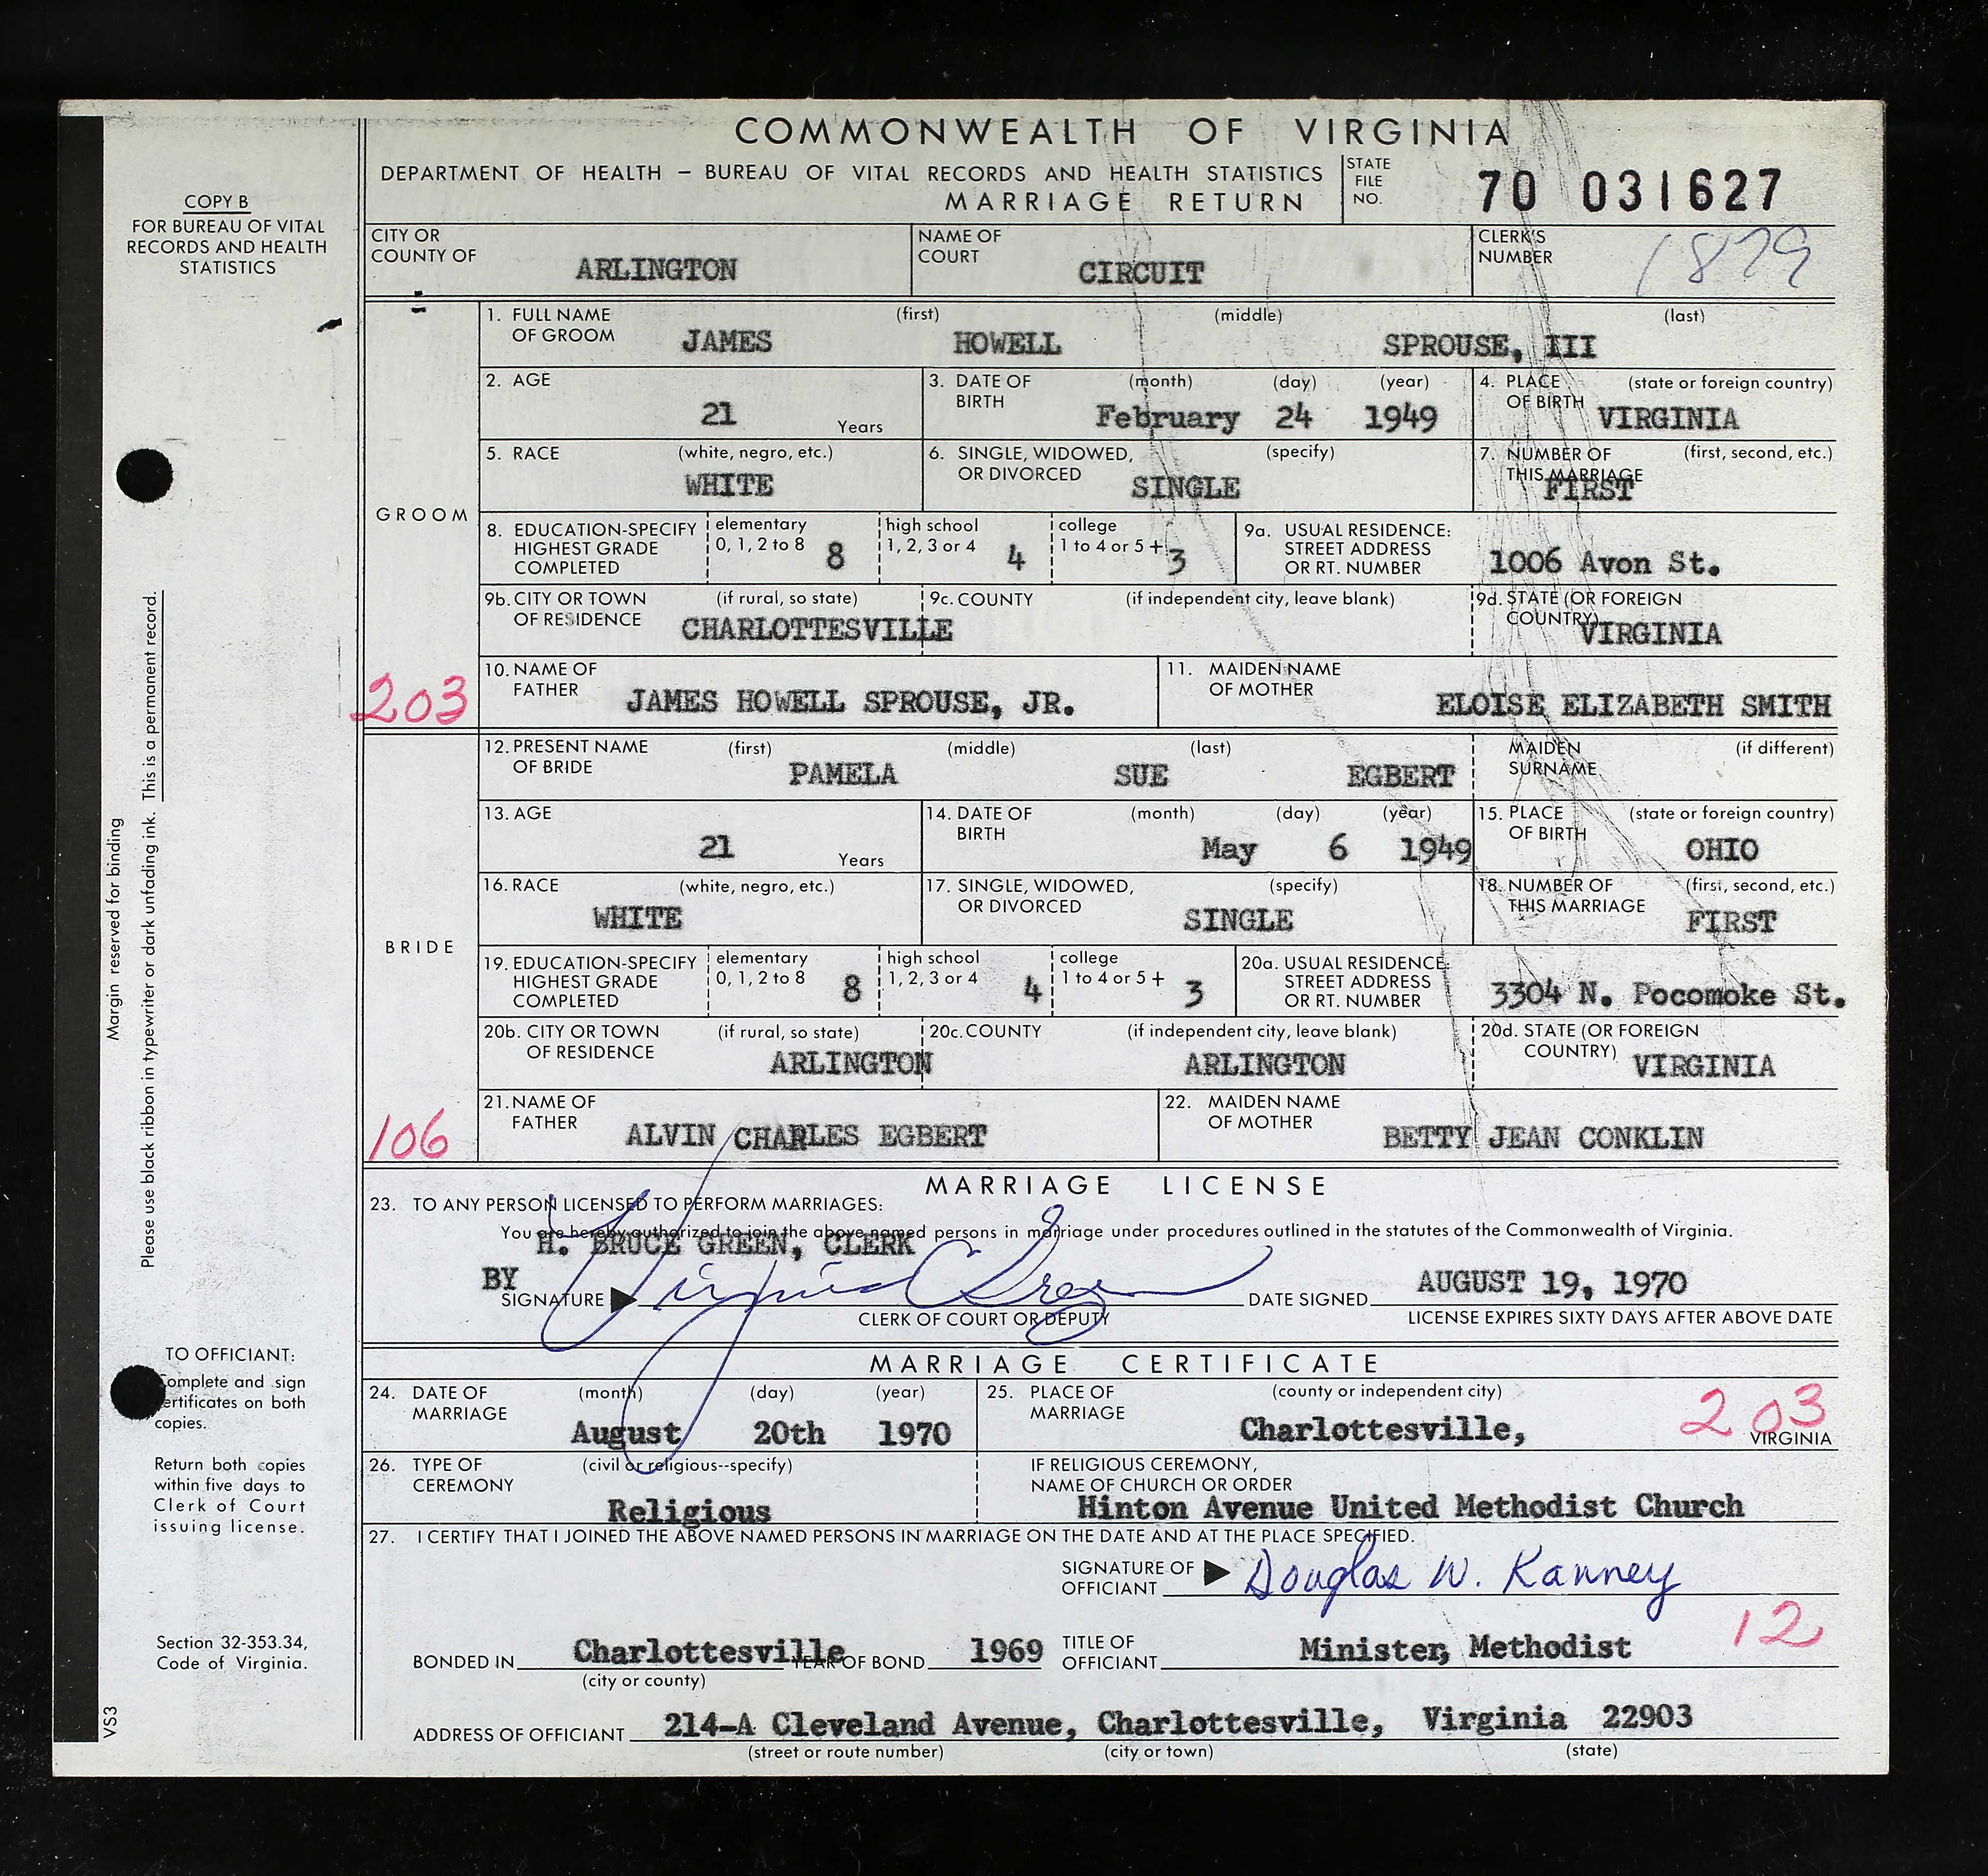 COMMONWEALTH OF VIRGINIA
DEPARTMENT OF HEALTH – BUREAU OF VITAL RECORDS AND HEALTH STATISTICS
MARRIAGE RETURN
STATE FILE NO. 70 031627
COPY B
FOR BUREAU OF VITAL
RECORDS AND HEALTH
STATISTICS
CITY OR COUNTY OF ARLINGTON
NAME OF COURT CIRCUIT
CLERK'S NUMBER 1879
GROOM
1. FULL NAME OF GROOM (first) (middle) (last)
JAMES HOWELL SPROUSE, III
2. AGE 21 Years
3. DATE OF BIRTH (month) (day) (year) February 24 1949
4. PLACE OF BIRTH (state or foreign country) VIRGINIA
5. RACE (white, negro, etc.) WHITE
6. SINGLE, WIDOWED, OR DIVORCED (specify) SINGLE
7. NUMBER OF THIS MARRIAGE (first, second, etc.) FIRST
8. EDUCATION-SPECIFY HIGHEST GRADE COMPLETED
elementary 0, 1, 2 to 8 8
high school 1, 2, 3 or 4 4
college 1 to 4 or 5 + 3
9a. USUAL RESIDENCE: STREET ADDRESS OR RT. NUMBER 1006 Avon St.
9b. CITY OR TOWN OF RESIDENCE (if rural, so state) CHARLOTTESVILLE
9c. COUNTY (if independent city, leave blank)
9d. STATE (OR FOREIGN COUNTRY) VIRGINIA
203
10. NAME OF FATHER JAMES HOWELL SPROUSE, JR.
11. MAIDEN NAME OF MOTHER ELOISE ELIZABETH SMITH
BRIDE
12. PRESENT NAME OF BRIDE (first) (middle) (last)
PAMELA SUE EGBERT
MAIDEN SURNAME (if different)
13. AGE 21 Years
14. DATE OF BIRTH (month) (day) (year) May 6 1949
15. PLACE OF BIRTH (state or foreign country) OHIO
16. RACE (white, negro, etc.) WHITE
17. SINGLE, WIDOWED, OR DIVORCED (specify) SINGLE
18. NUMBER OF THIS MARRIAGE (first, second, etc.) FIRST
19. EDUCATION-SPECIFY HIGHEST GRADE COMPLETED
elementary 0, 1, 2 to 8 8
high school 1, 2, 3 or 4 4
college 1 to 4 or 5 + 3
20a. USUAL RESIDENCE: STREET ADDRESS OR RT. NUMBER 3304 N. Pocomoke St.
20b. CITY OR TOWN OF RESIDENCE (if rural, so state) ARLINGTON
20c. COUNTY (if independent city, leave blank) ARLINGTON
20d. STATE (OR FOREIGN COUNTRY) VIRGINIA
106
21. NAME OF FATHER ALVIN CHARLES EGBERT
22. MAIDEN NAME OF MOTHER BETTY JEAN CONKLIN
MARRIAGE LICENSE
23. TO ANY PERSON LICENSED TO PERFORM MARRIAGES:
You are hereby authorized to join the above named persons in marriage under procedures outlined in the statutes of the Commonwealth of Virginia.
H. BRUCE GREEN, CLERK
BY
SIGNATURE Virginia C Green
CLERK OF COURT OR DEPUTY
DATE SIGNED AUGUST 19, 1970
LICENSE EXPIRES SIXTY DAYS AFTER ABOVE DATE
MARRIAGE CERTIFICATE
24. DATE OF MARRIAGE (month) (day) (year) August 20th 1970
25. PLACE OF MARRIAGE (county or independent city) Charlottesville, VIRGINIA
203
26. TYPE OF CEREMONY (civil or religious--specify) Religious
IF RELIGIOUS CEREMONY, NAME OF CHURCH OR ORDER Hinton Avenue United Methodist Church
27. I CERTIFY THAT I JOINED THE ABOVE NAMED PERSONS IN MARRIAGE ON THE DATE AND AT THE PLACE SPECIFIED.
SIGNATURE OF OFFICIANT Douglas W. Kanney
12
BONDED IN Charlottesville (city or county) YEAR OF BOND 1969
TITLE OF OFFICIANT Minister, Methodist
ADDRESS OF OFFICIANT 214-A Cleveland Avenue, Charlottesville, Virginia 22903
(street or route number) (city or town) (state)
Margin reserved for binding
Please use black ribbon in typewriter or dark unfading ink. This is a permanent record.
TO OFFICIANT:
omplete and sign
ertificates on both
copies.
Return both copies
within five days to
Clerk of Court
issuing license.
Section 32-353.34,
Code of Virginia.
VS3